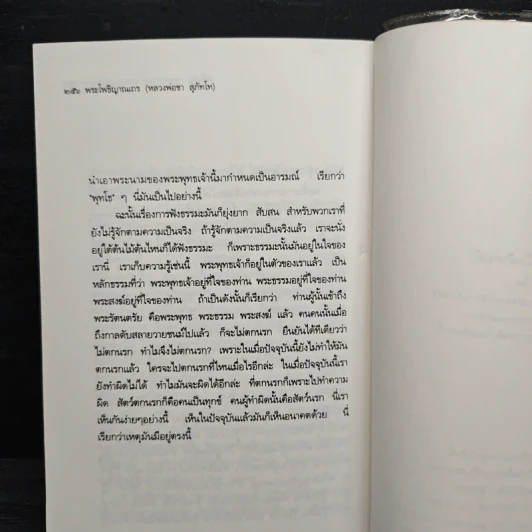 ๒๕๖ พระโพธิญาณเถร (หลวงพ่อชา สุภัทโท)
นำเอาพระนามของพระพุทธเจ้านี้มากำหนดเป็นอารมณ์ เรียกว่า
"พุทโธ" ๆ นี่มันเป็นไปอย่างนี้
ฉะนั้นเรื่องการฟังธรรมะมันก็ยุ่งยาก สับสน สำหรับพวกเราที่
ยังไม่รู้จักตามความเป็นจริง ถ้ารู้จักตามความเป็นจริงแล้ว เราจะนั่ง
อยู่ใต้ต้นไม้ต้นไหนก็ได้ฟังธรรมะ ก็เพราะธรรมะนั้นมันอยู่ในใจของ
เรานี้ เราเก็บความรู้เช่นนี้ พระพุทธเจ้าก็อยู่ในตัวของเราแล้ว เป็น
หลักธรรมที่ว่า พระพุทธเจ้าอยู่ที่ใจของท่าน พระธรรมอยู่ที่ใจของท่าน
พระสงฆ์อยู่ที่ใจของท่าน ถ้าเป็นดังนั้นก็เรียกว่า ท่านผู้นั้นเข้าถึง
พระรัตนตรัย คือพระพุทธ พระธรรม พระสงฆ์ แล้ว คนคนนั้นเมื่อ
ถึงกาลดับสลายวายชนม์ไปแล้ว ก็จะไม่ตกนรก ยืนยันได้ทีเดียวว่า
ไม่ตกนรก ทำไมจึงไม่ตกนรก? เพราะในเมื่อปัจจุบันนี้ยังไม่ทำให้มัน
ตกนรกแล้ว ใครจะไปตกนรกที่ไหนเมื่อไรอีกล่ะ ในเมื่อปัจจุบันนี้เรา
ยังทำผิดไม่ได้ ทำไมมันจะผิดได้อีกล่ะ ที่ตกนรกก็เพราะไปทำความ
ผิด สัตว์ตกนรกก็คือคนเป็นทุกข์ คนผู้ทำผิดนั้นคือสัตว์นรก นี่เรา
เห็นกันง่ายๆอย่างนี้ เห็นในปัจจุบันแล้วมันก็เห็นอนาคตด้วย นี่
เรียกว่าเหตุมันมีอยู่ตรงนี้